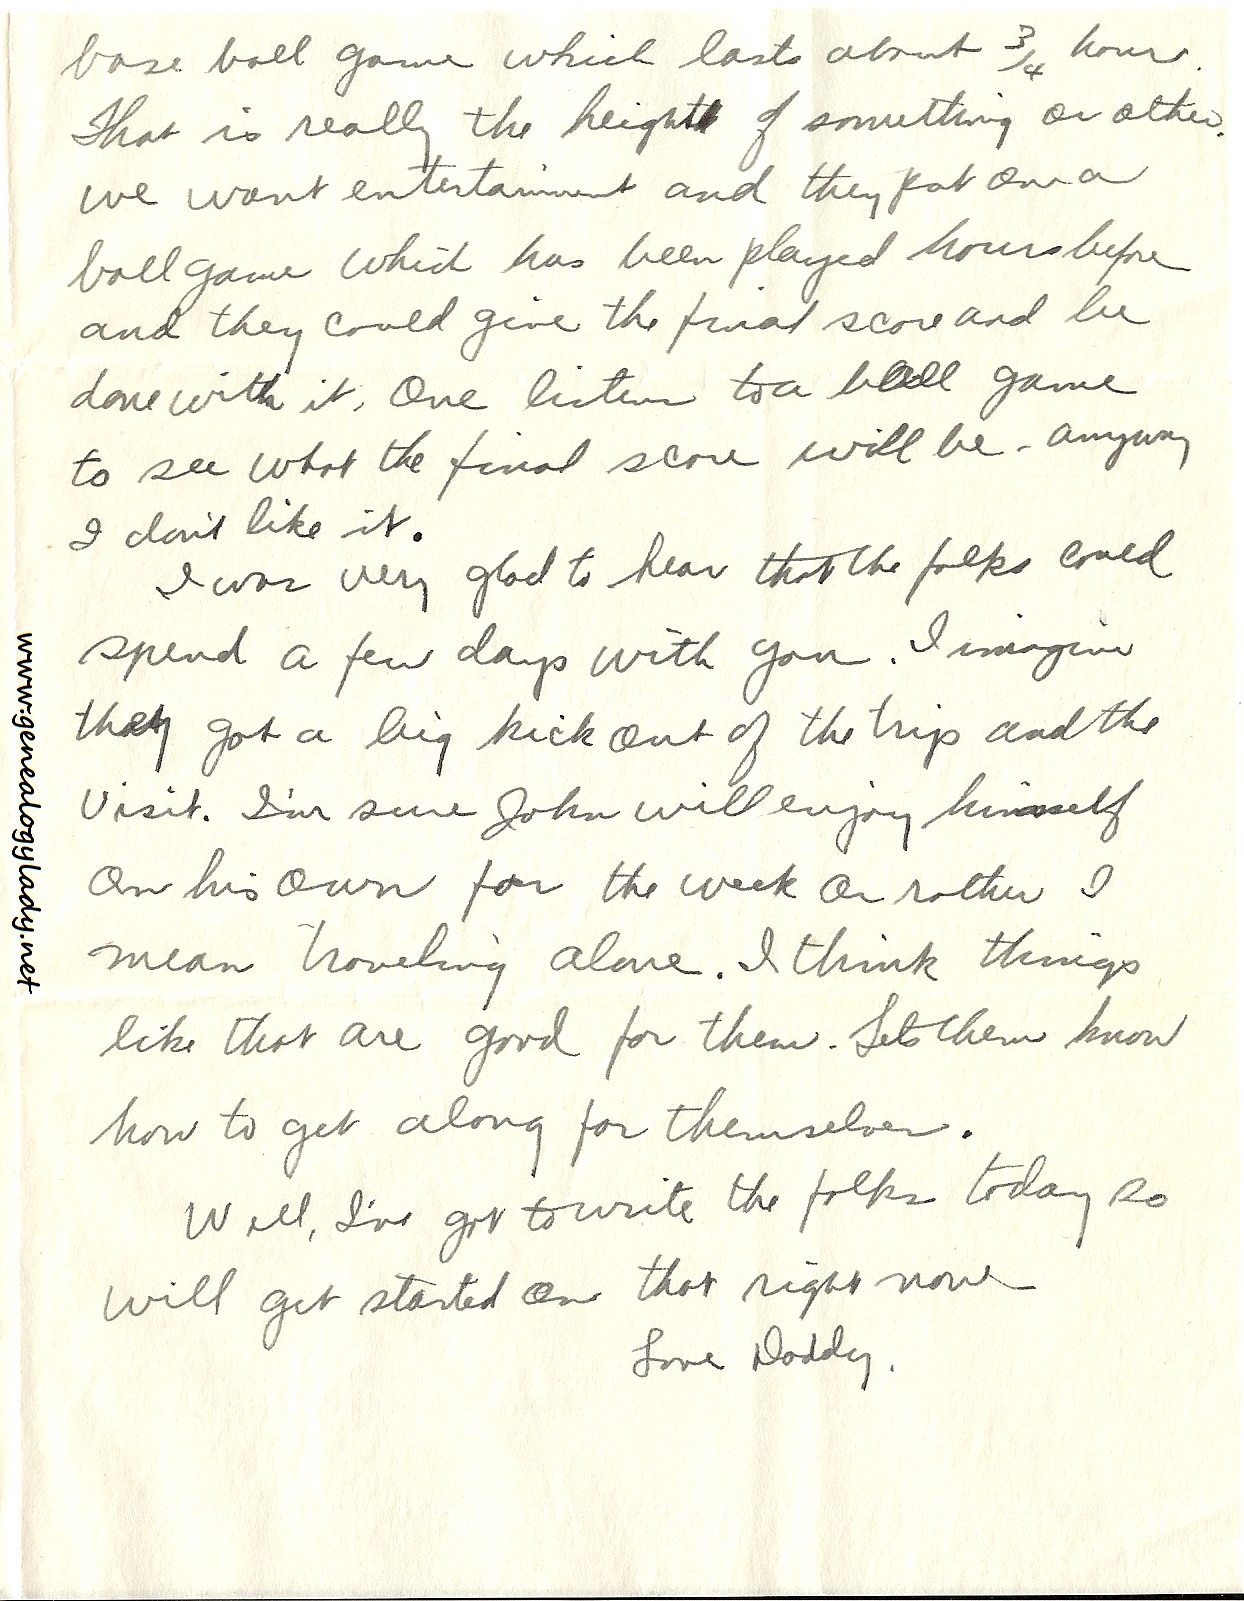 base ball game which lasts about 3/4 hour.
That is really the height of something or other.
we want entertainment and they put on a
ball game which has been played hours before
and they could give the final score and be
done with it. One listens to a ball game
to see what the final score will be - anyway
I don't like it.
I was very glad to hear that the folks could
spend a few days with you. I imagine
they got a big kick out of the trip and the
visit. I'm sure John will enjoy himself
on his own for the week or rather I
mean traveling alone. I think things
like that are good for them. Lets them know
how to get along for themselves.
Well, I've got to write the folks today so
will get started on that right now
Love Daddy.
www.genealogylady.net